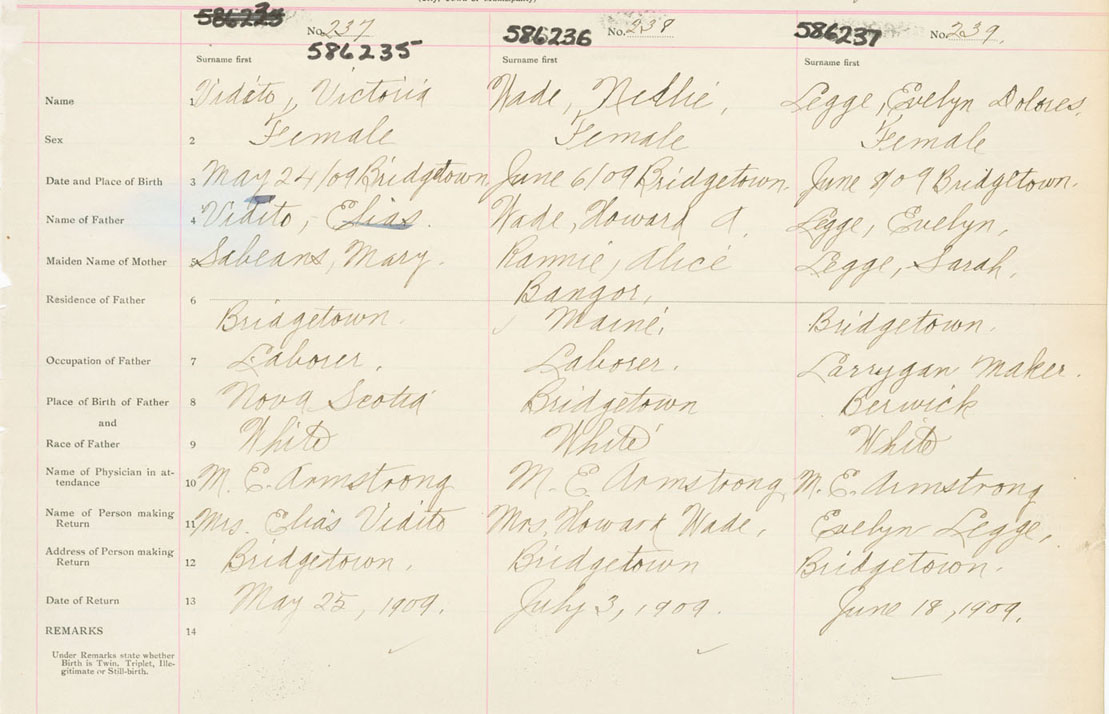 (City, Town or Municipality)
No. 237
586235
586236
No. 238
586237
No. 239.
Surname first
Surname first
Surname first
Name
1 Vidito, Victoria
Wade, Nellie,
Legge, Evelyn Dolores.
Sex
2 Female
Female
Female
Date and Place of Birth
3 May 24/09 Bridgetown,
June 6/09 Bridgetown.
June 8/09 Bridgetown.
Name of Father
4 Vidito, Elias.
Wade, Howard A.
Legge, Evelyn,
Maiden Name of Mother
5 Sabeans, Mary.
Rannie, Alice
Legge, Sarah,
Residence of Father
6
Bridgetown.
Bangor,
Maine,
Bridgetown.
Occupation of Father
7 Laborer,
Laborer.
Larrygan Maker.
Place of Birth of Father
8 Nova Scotia
Bridgetown
Berwick
and
Race of Father
9 White
White
White
Name of Physician in at-
tendance
10 M. E. Armstrong
M. E Armstrong
M. E. Armstrong
Name of Person making
Return
11 Mrs. Elias Vidito
Mrs. Howard Wade,
Evelyn Legge,
Address of Person making
Return
12 Bridgetown,
Bridgetown
Bridgetown.
Date of Return
13 May 25, 1909.
July 3, 1909.
June 18, 1909.
REMARKS
14
Under Remarks state whether
Birth is Twin, Triplet, Ille-
gitimate or Still-birth.